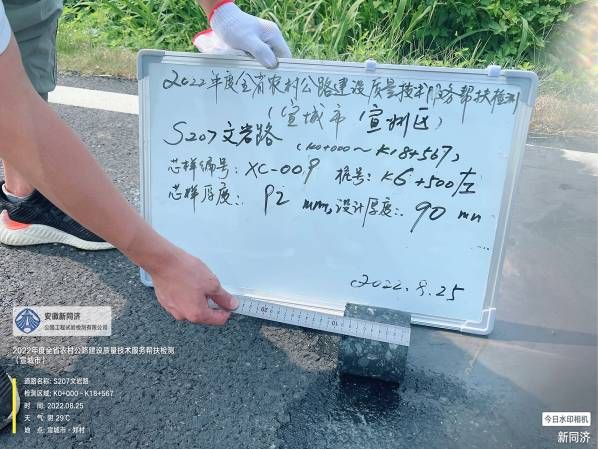 2022年度全省农村公路建设质量技术服务帮扶检测
(宣城市 宣州区)
S207文岩路 (K0+000～K18+567)
芯样编号：XC-009 桩号：K6+500左
芯样厚度：92mm，设计厚度：90mm
2022.8.25
安徽新同济
公路工程试验检测有限公司
2022年度全省农村公路建设质量技术服务帮扶检测
(宣城市)
道路名称：S207文岩路
检测区域：K0+000～K18+567
时 间：2022.08.25
天 气：阴 29℃
地 点：宣城市·郑村
今日水印相机
新同济